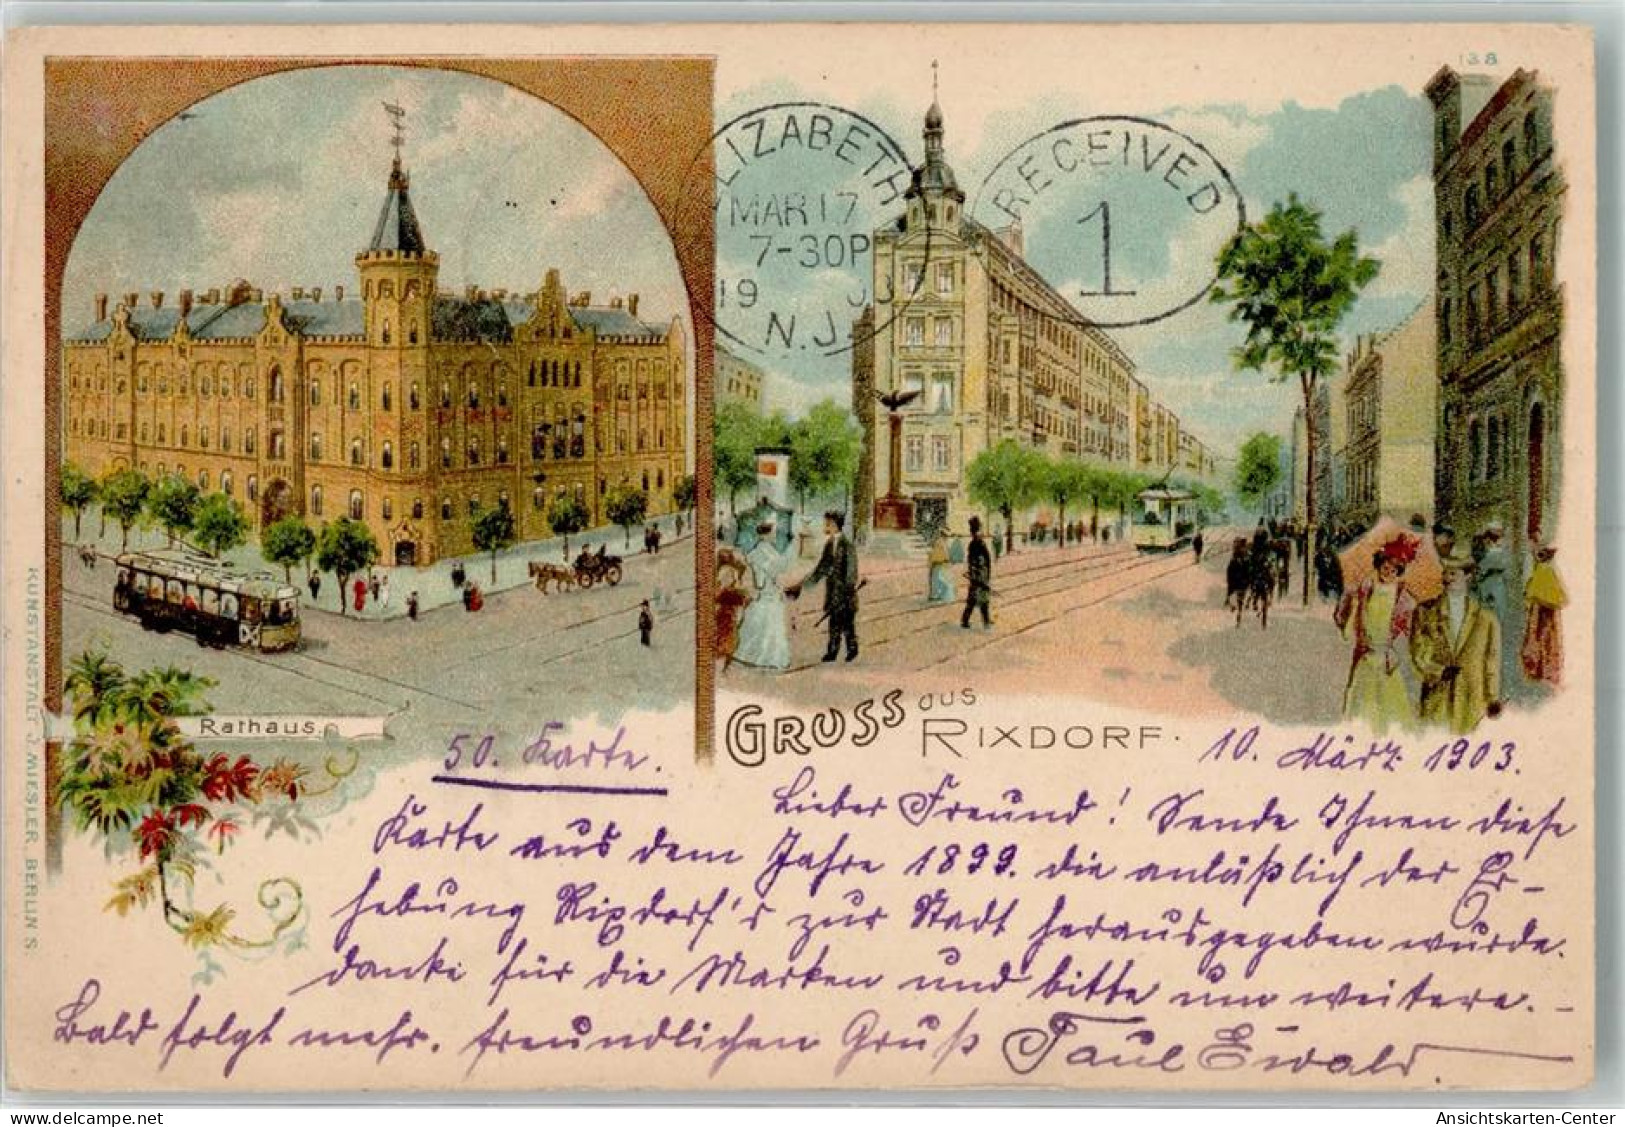 138
ELIZABETH
MAR 17
7-30P
19 03
N.J.
RECEIVED
1
Rathaus.
GRUSS aus RIXDORF.
KUNSTANSTALT J. MIESLER, BERLIN S.
50. Karte.
10. März 1903.
Lieber Freund! Sende Ihnen diese
Karte aus dem Jahre 1899. die anläßlich der Er-
hebung Rixdorf's zur Stadt herausgegeben wurde.
danke für die Marken und bitte um weitere. –
Bald folgt mehr. freundlichen Gruß Paul Ewald.
Ansichtskarten-Center
www.ansichtskarten-center.de